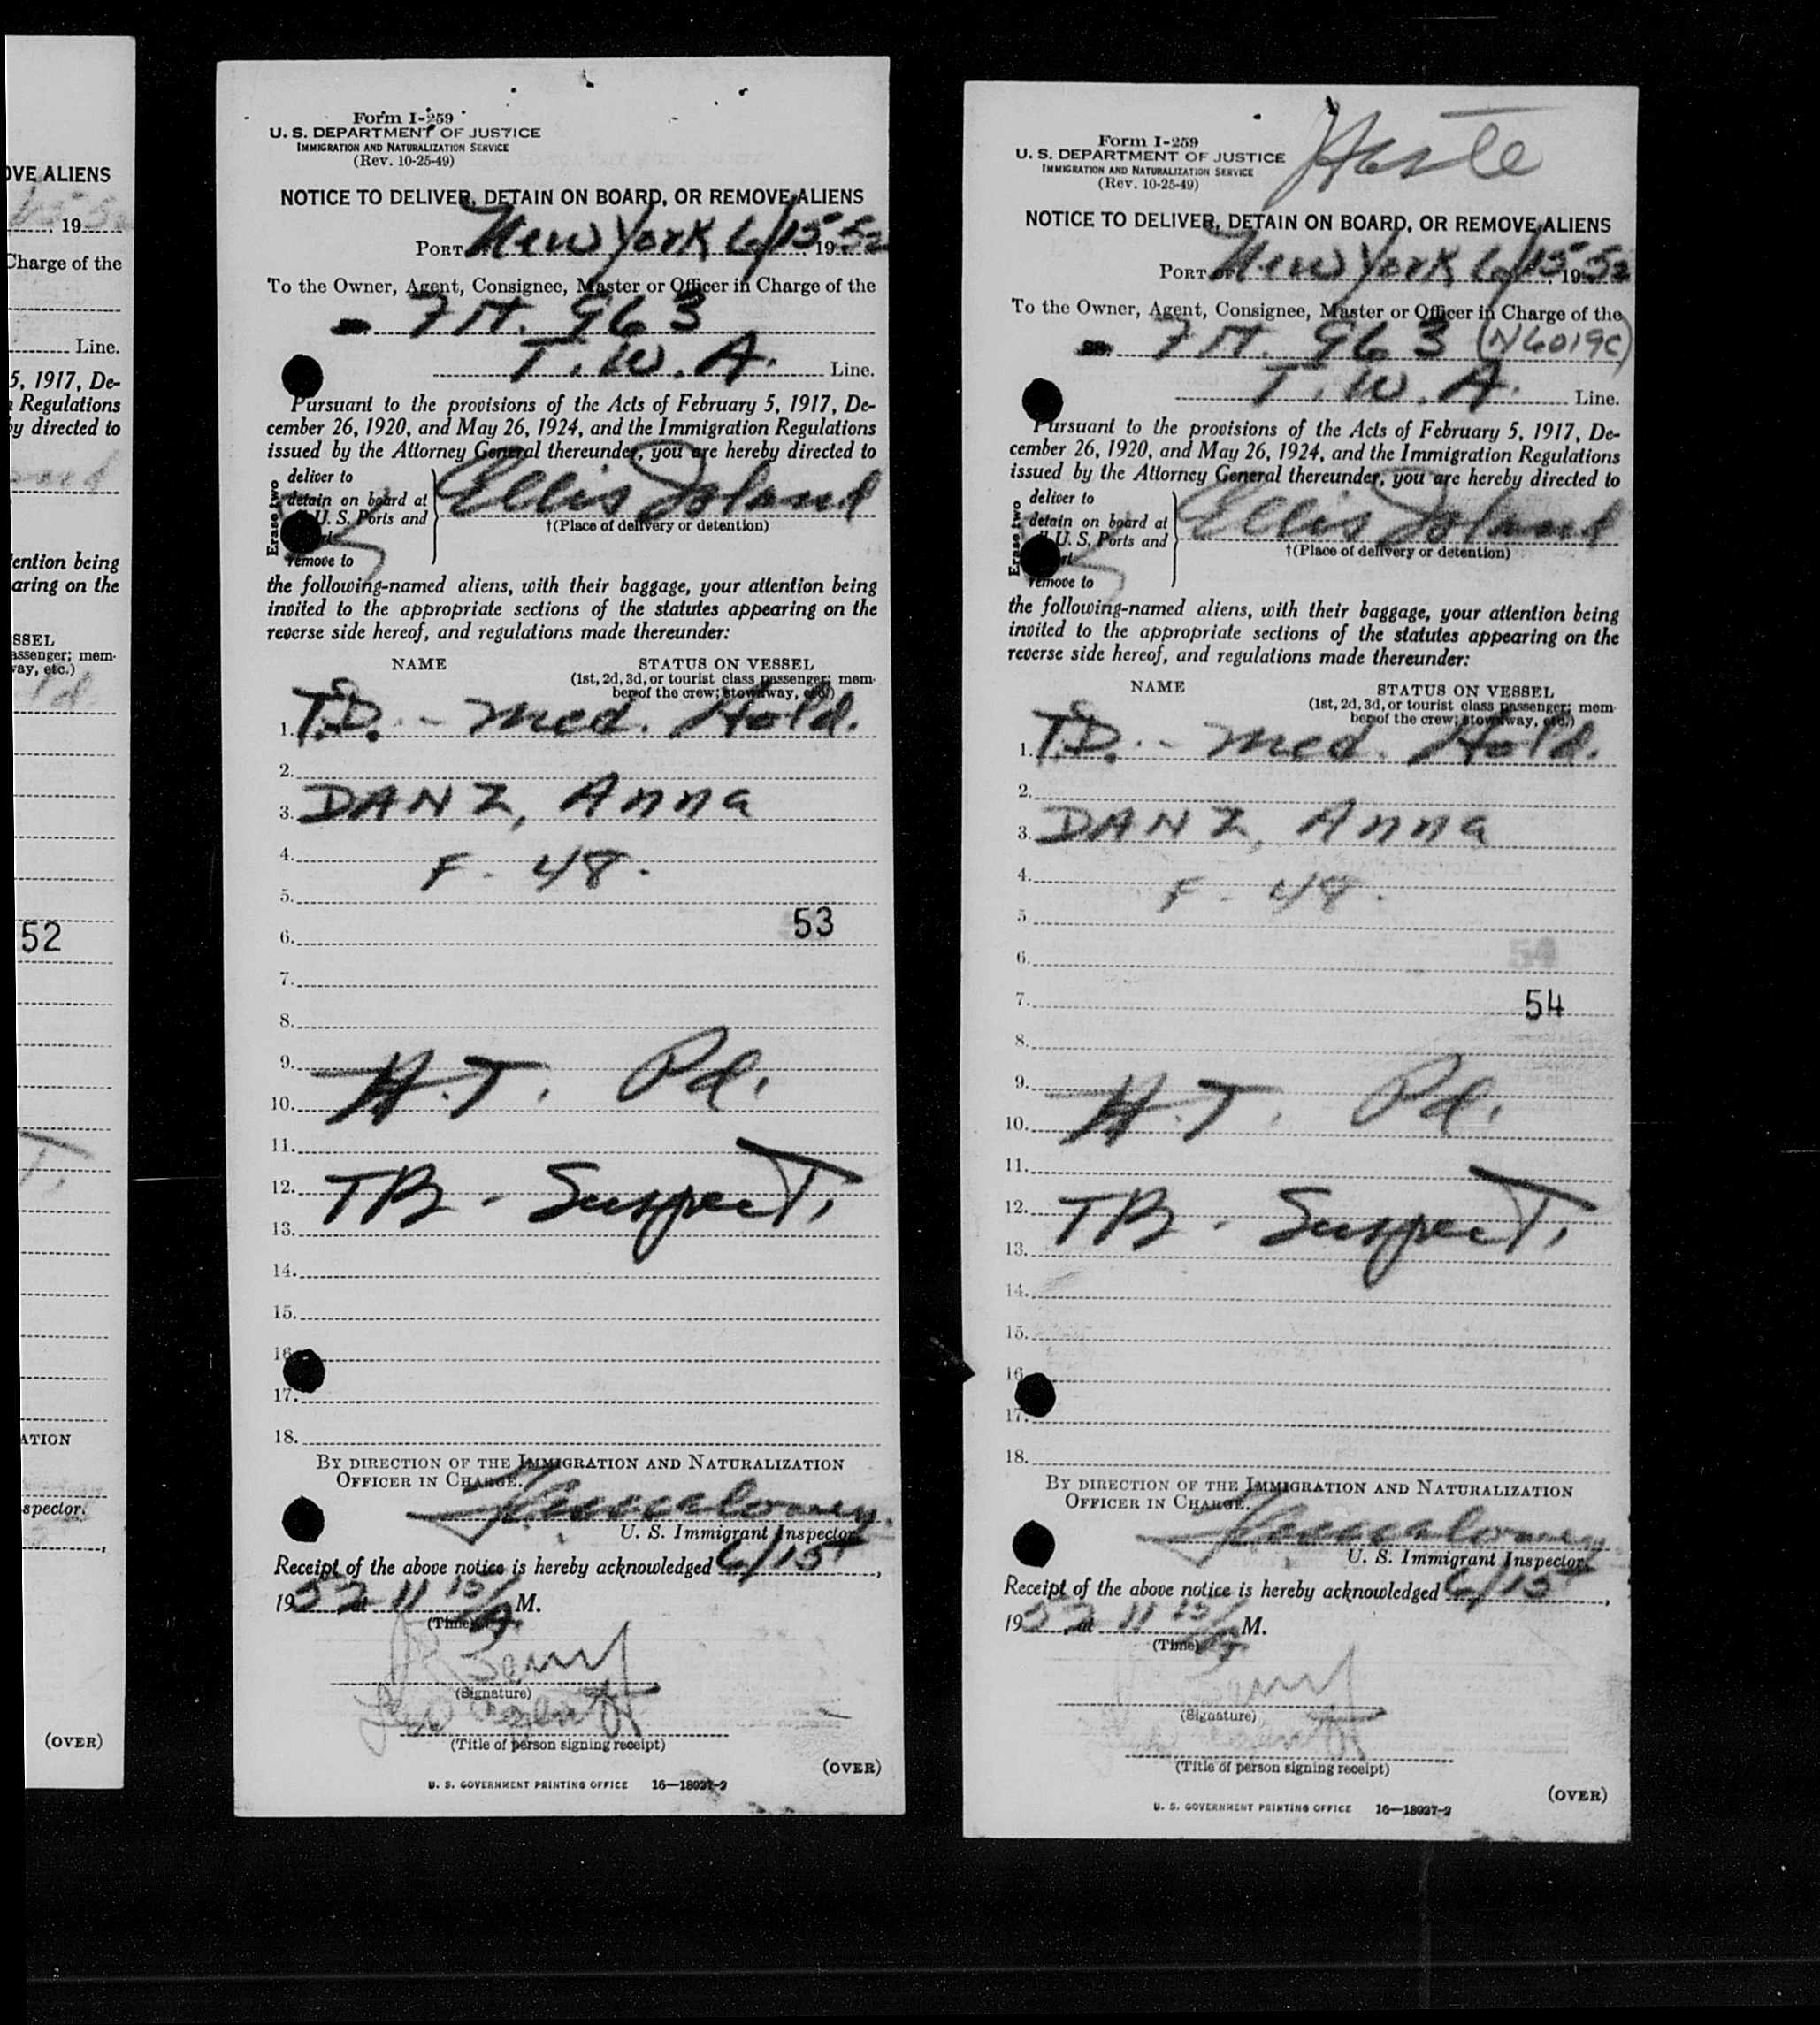 OVE ALIENS
19
Charge of the
Line.
5, 1917, De-
Regulations
by directed to
ention being
aring on the
SSEL
assenger; mem-
ay, etc.)
52
ATION
spector.
(OVER)
Form I-259
U. S. DEPARTMENT OF JUSTICE
IMMIGRATION AND NATURALIZATION SERVICE
(Rev. 10-25-49)
NOTICE TO DELIVER, DETAIN ON BOARD, OR REMOVE ALIENS
PORT OF New York 6/15 1952
To the Owner, Agent, Consignee, Master or Officer in Charge of the
7H. 963
T. W. A. Line.
Pursuant to the provisions of the Acts of February 5, 1917, De-
cember 26, 1920, and May 26, 1924, and the Immigration Regulations
issued by the Attorney General thereunder, you are hereby directed to
Erase two
deliver to
detain on board at
U. S. Ports and
remove to
Ellis Island
†(Place of delivery or detention)
the following-named aliens, with their baggage, your attention being
invited to the appropriate sections of the statutes appearing on the
reverse side hereof, and regulations made thereunder:
NAME STATUS ON VESSEL
(1st, 2d, 3d, or tourist class passenger; mem-
ber of the crew; stowaway, etc.)
1. T.D. - Med. Hold.
2.
3. DANZ, Anna
4. F - 48.
5.
6. 53
7.
8.
9.
10. H.T. Pd.
11.
12. TB - Suspect.
13.
14.
15.
16.
17.
18.
BY DIRECTION OF THE IMMIGRATION AND NATURALIZATION
OFFICER IN CHARGE.
U. S. Immigrant Inspector.
Receipt of the above notice is hereby acknowledged 6/15,
1952 at 11 15/A M.
(Time)
(Signature)
(Title of person signing receipt)
(OVER)
U. S. GOVERNMENT PRINTING OFFICE 16—18027-2
Form I-259
U. S. DEPARTMENT OF JUSTICE
IMMIGRATION AND NATURALIZATION SERVICE
(Rev. 10-25-49)
NOTICE TO DELIVER, DETAIN ON BOARD, OR REMOVE ALIENS
PORT OF New York 6/15 1952
To the Owner, Agent, Consignee, Master or Officer in Charge of the
7H. 963 (N6019C)
T. W. A. Line.
Pursuant to the provisions of the Acts of February 5, 1917, De-
cember 26, 1920, and May 26, 1924, and the Immigration Regulations
issued by the Attorney General thereunder, you are hereby directed to
Erase two
deliver to
detain on board at
U. S. Ports and
remove to
Ellis Island
†(Place of delivery or detention)
the following-named aliens, with their baggage, your attention being
invited to the appropriate sections of the statutes appearing on the
reverse side hereof, and regulations made thereunder:
NAME STATUS ON VESSEL
(1st, 2d, 3d, or tourist class passenger; mem-
ber of the crew; stowaway, etc.)
1. T.D. - Med. Hold.
2.
3. DANZ, Anna
4. F - 48.
5.
6. 54
7. 54
8.
9.
10. H.T. Pd.
11.
12. TB - Suspect.
13.
14.
15.
16.
17.
18.
BY DIRECTION OF THE IMMIGRATION AND NATURALIZATION
OFFICER IN CHARGE.
U. S. Immigrant Inspector.
Receipt of the above notice is hereby acknowledged 6/15,
1952, at 11 15/A M.
(Time)
(Signature)
(Title of person signing receipt)
(OVER)
U. S. GOVERNMENT PRINTING OFFICE 16—18027-2